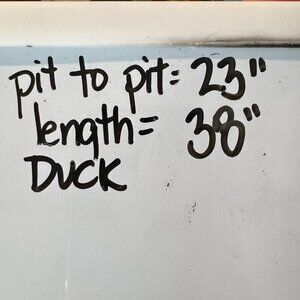 pit to pit = 23"
length = 38"
DUCK